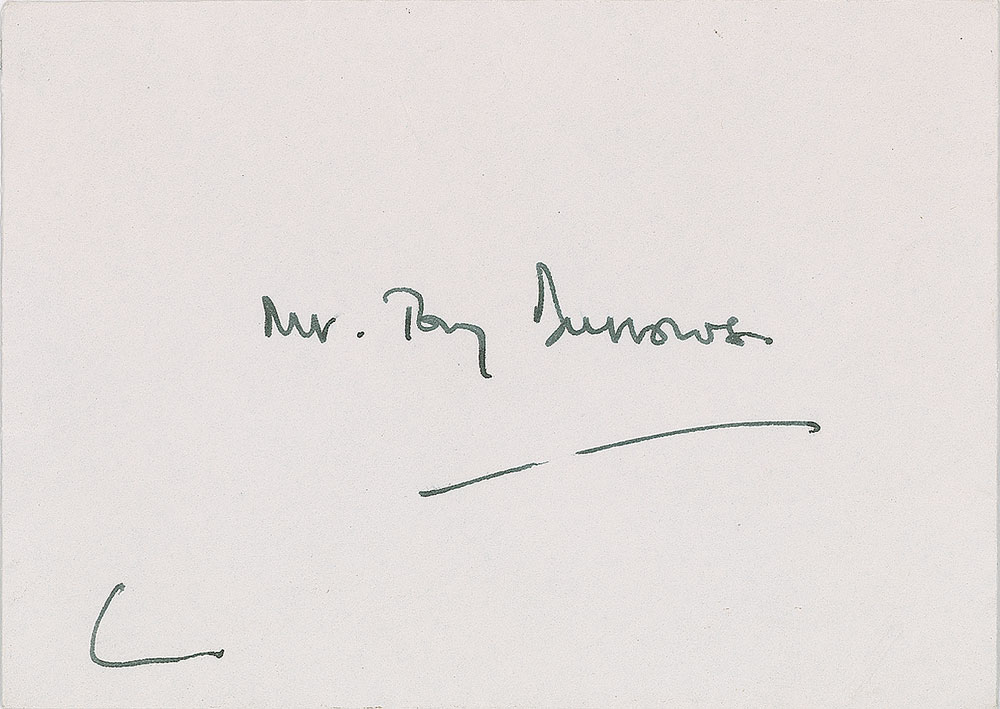 Mr. Tony Burrows